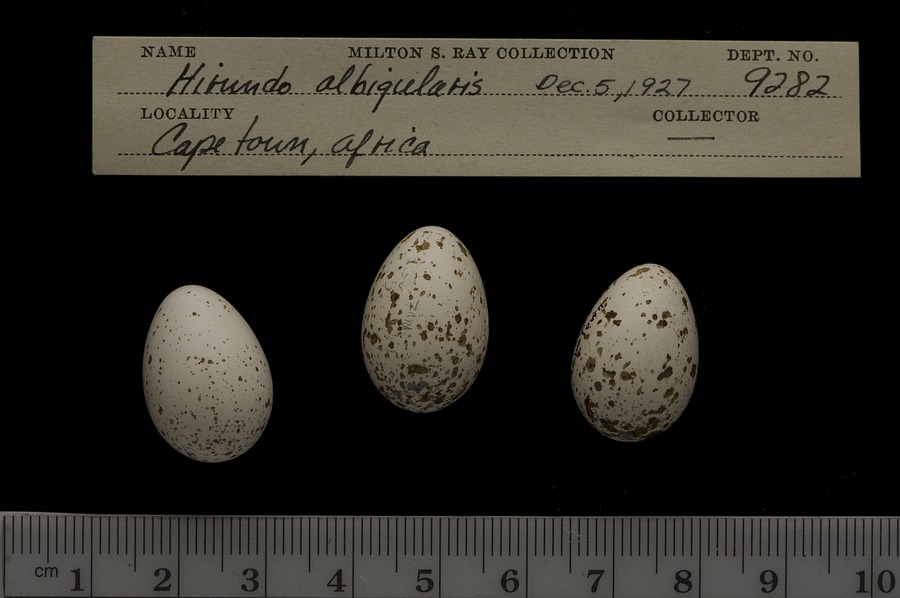 NAME MILTON S. RAY COLLECTION DEPT. NO.
Hirundo albigularis Dec. 5, 1927 9282
LOCALITY COLLECTOR
Cape town, africa —
cm 1 2 3 4 5 6 7 8 9 10